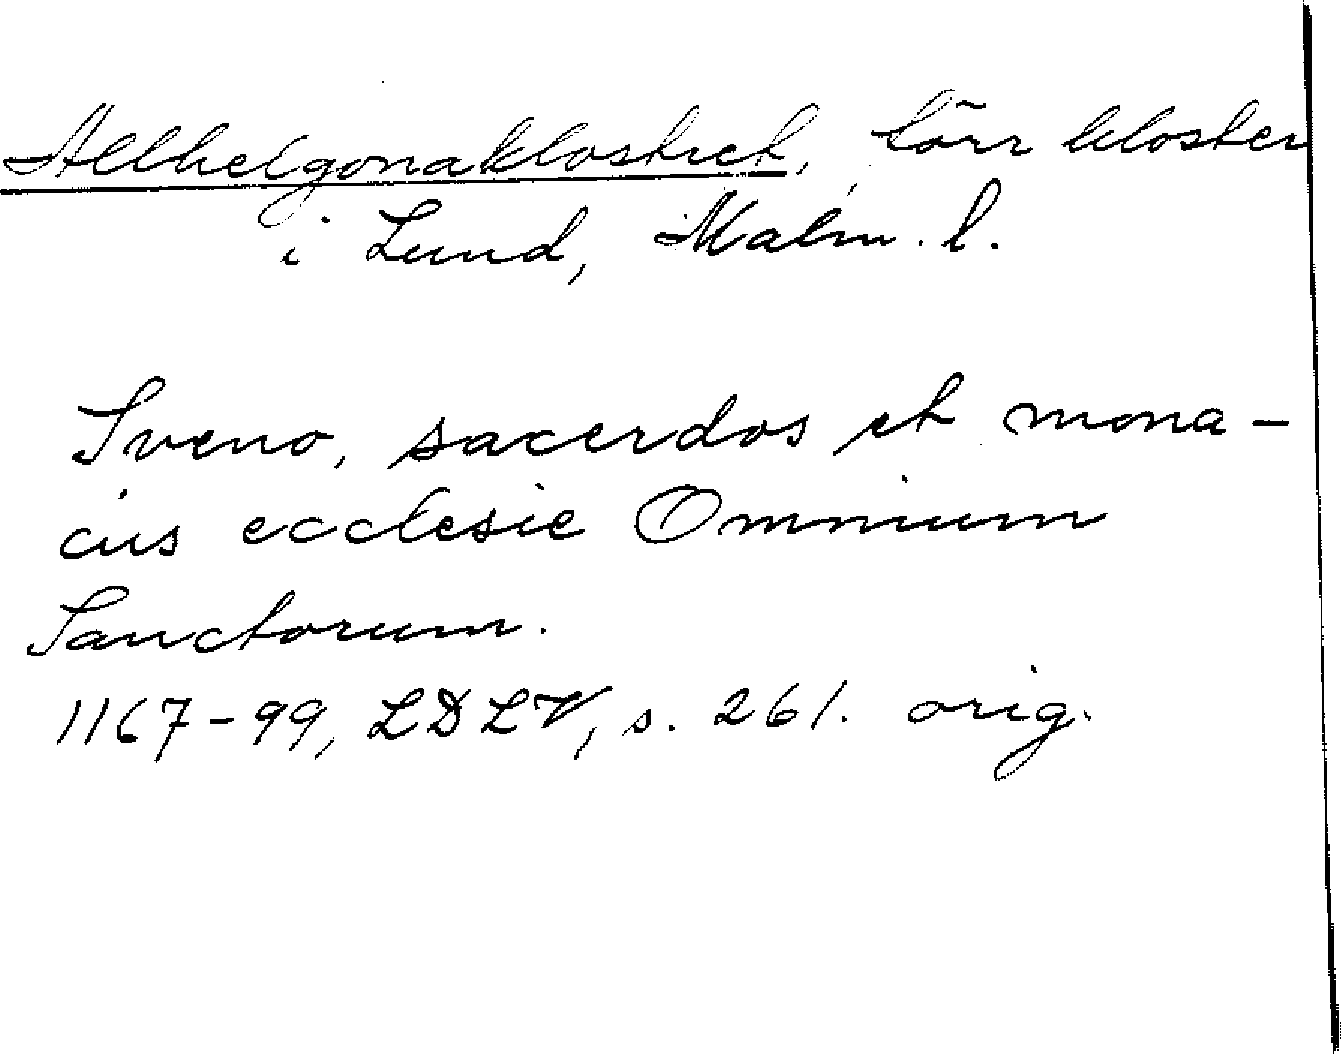 Allhelgonaklostret, förr kloster
i Lund, Malm. l.
Sveno, sacerdos et mona-
cus ecclesie Omnium
Sanctorum.
1167-99, LDLV, s. 261. orig.